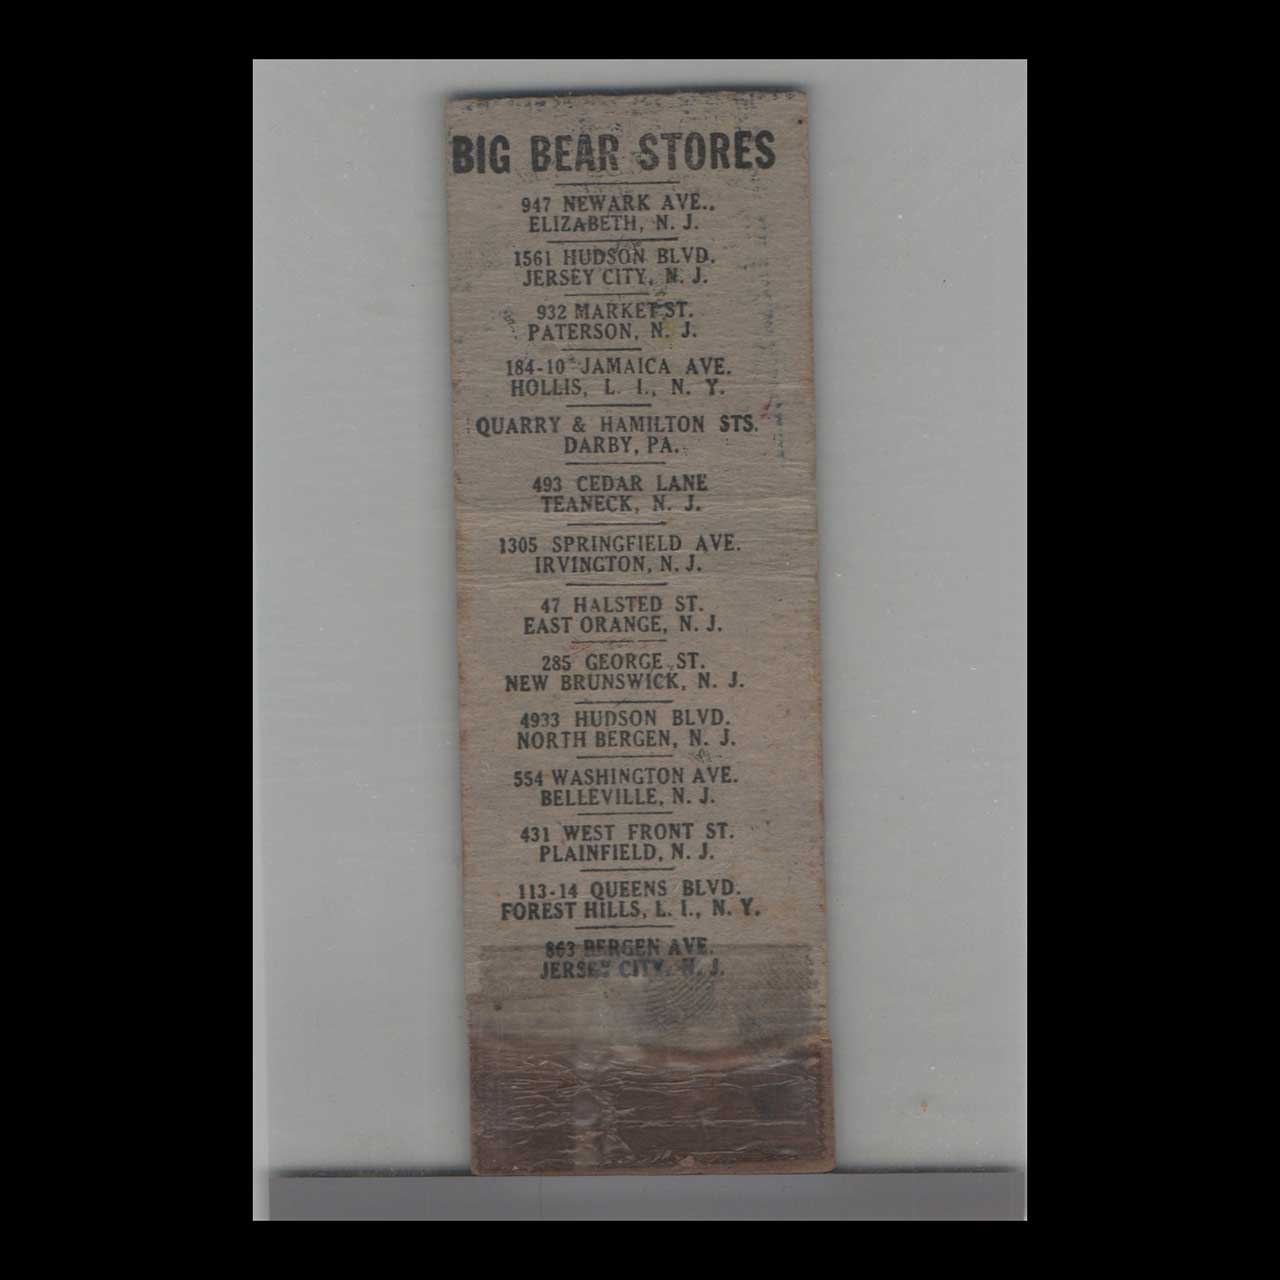 BIG BEAR STORES
947 NEWARK AVE.,
ELIZABETH, N. J.
1561 HUDSON BLVD.
JERSEY CITY, N. J.
932 MARKET ST.
PATERSON, N. J.
184-10 JAMAICA AVE.
HOLLIS, L. I., N. Y.
QUARRY & HAMILTON STS.
DARBY, PA.
493 CEDAR LANE
TEANECK, N. J.
1305 SPRINGFIELD AVE.
IRVINGTON, N. J.
47 HALSTED ST.
EAST ORANGE, N. J.
285 GEORGE ST.
NEW BRUNSWICK, N. J.
4933 HUDSON BLVD.
NORTH BERGEN, N. J.
554 WASHINGTON AVE.
BELLEVILLE, N. J.
431 WEST FRONT ST.
PLAINFIELD, N. J.
113-14 QUEENS BLVD.
FOREST HILLS, L. I., N. Y.
863 BERGEN AVE.
JERSEY CITY, N. J.